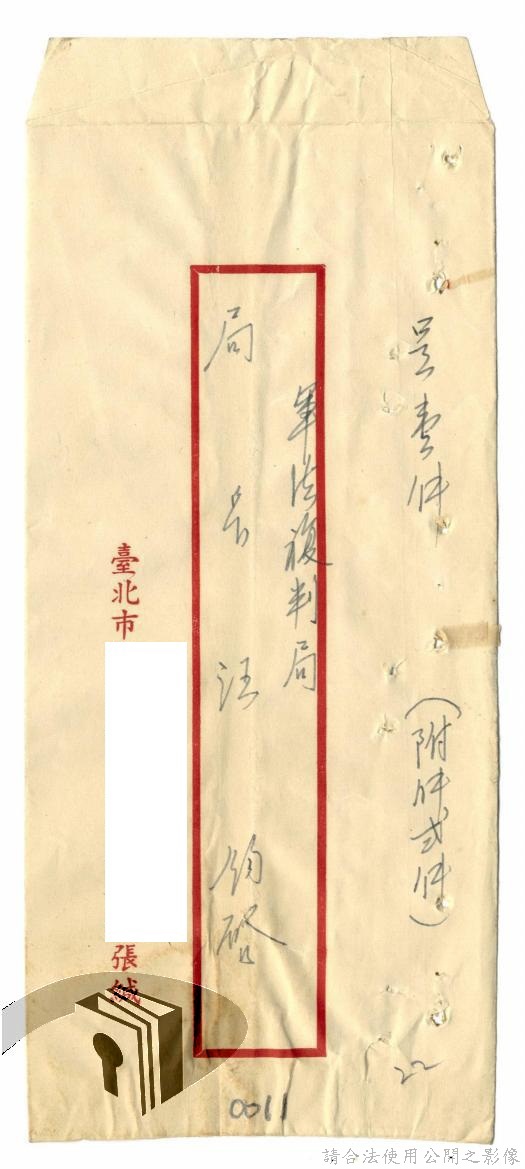 呈壹件
(附件弍件)
22
軍法復判局
局長汪 鈞啓
臺北市
張緘
0011
請合法使用公開之影像